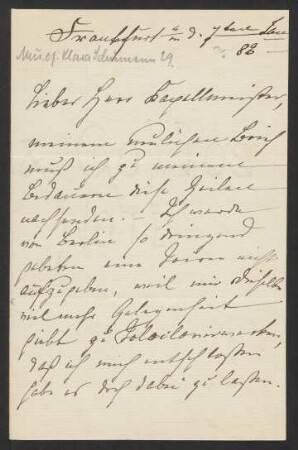 Frankfurt a/M d. 7ten Jan
88
Mus. ep. Klara Schumann 29
Lieber Herr Kapellmeister,
meinem neulichen Brief
muß ich zu meinem
Bedauern diese Zeilen
nachsenden. – Ich werde
von Berlin so dringend
gebeten eine Soiree nicht
aufzugeben, weil mir dieselbe
viel mehr Gelegenheit
giebt zu
daß ich mich entschlossen
habe es doch dabei zu lassen.